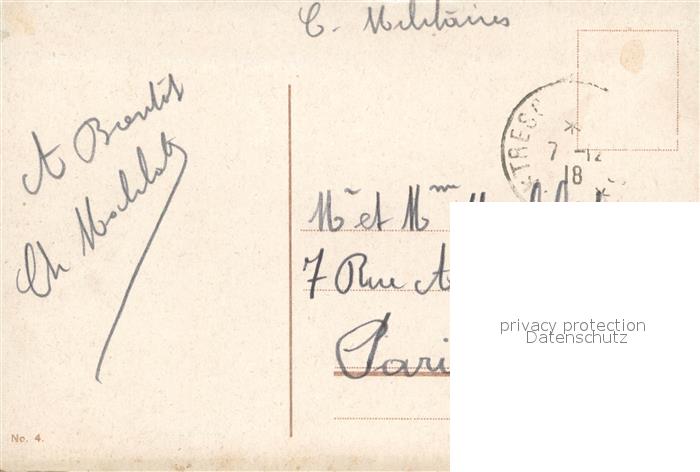 C. Militaires
A Bientôt
Ch
TRES
7 -12
18
Mr et Mme
7 Rue A
Pari
privacy protection
Datenschutz
No. 4.